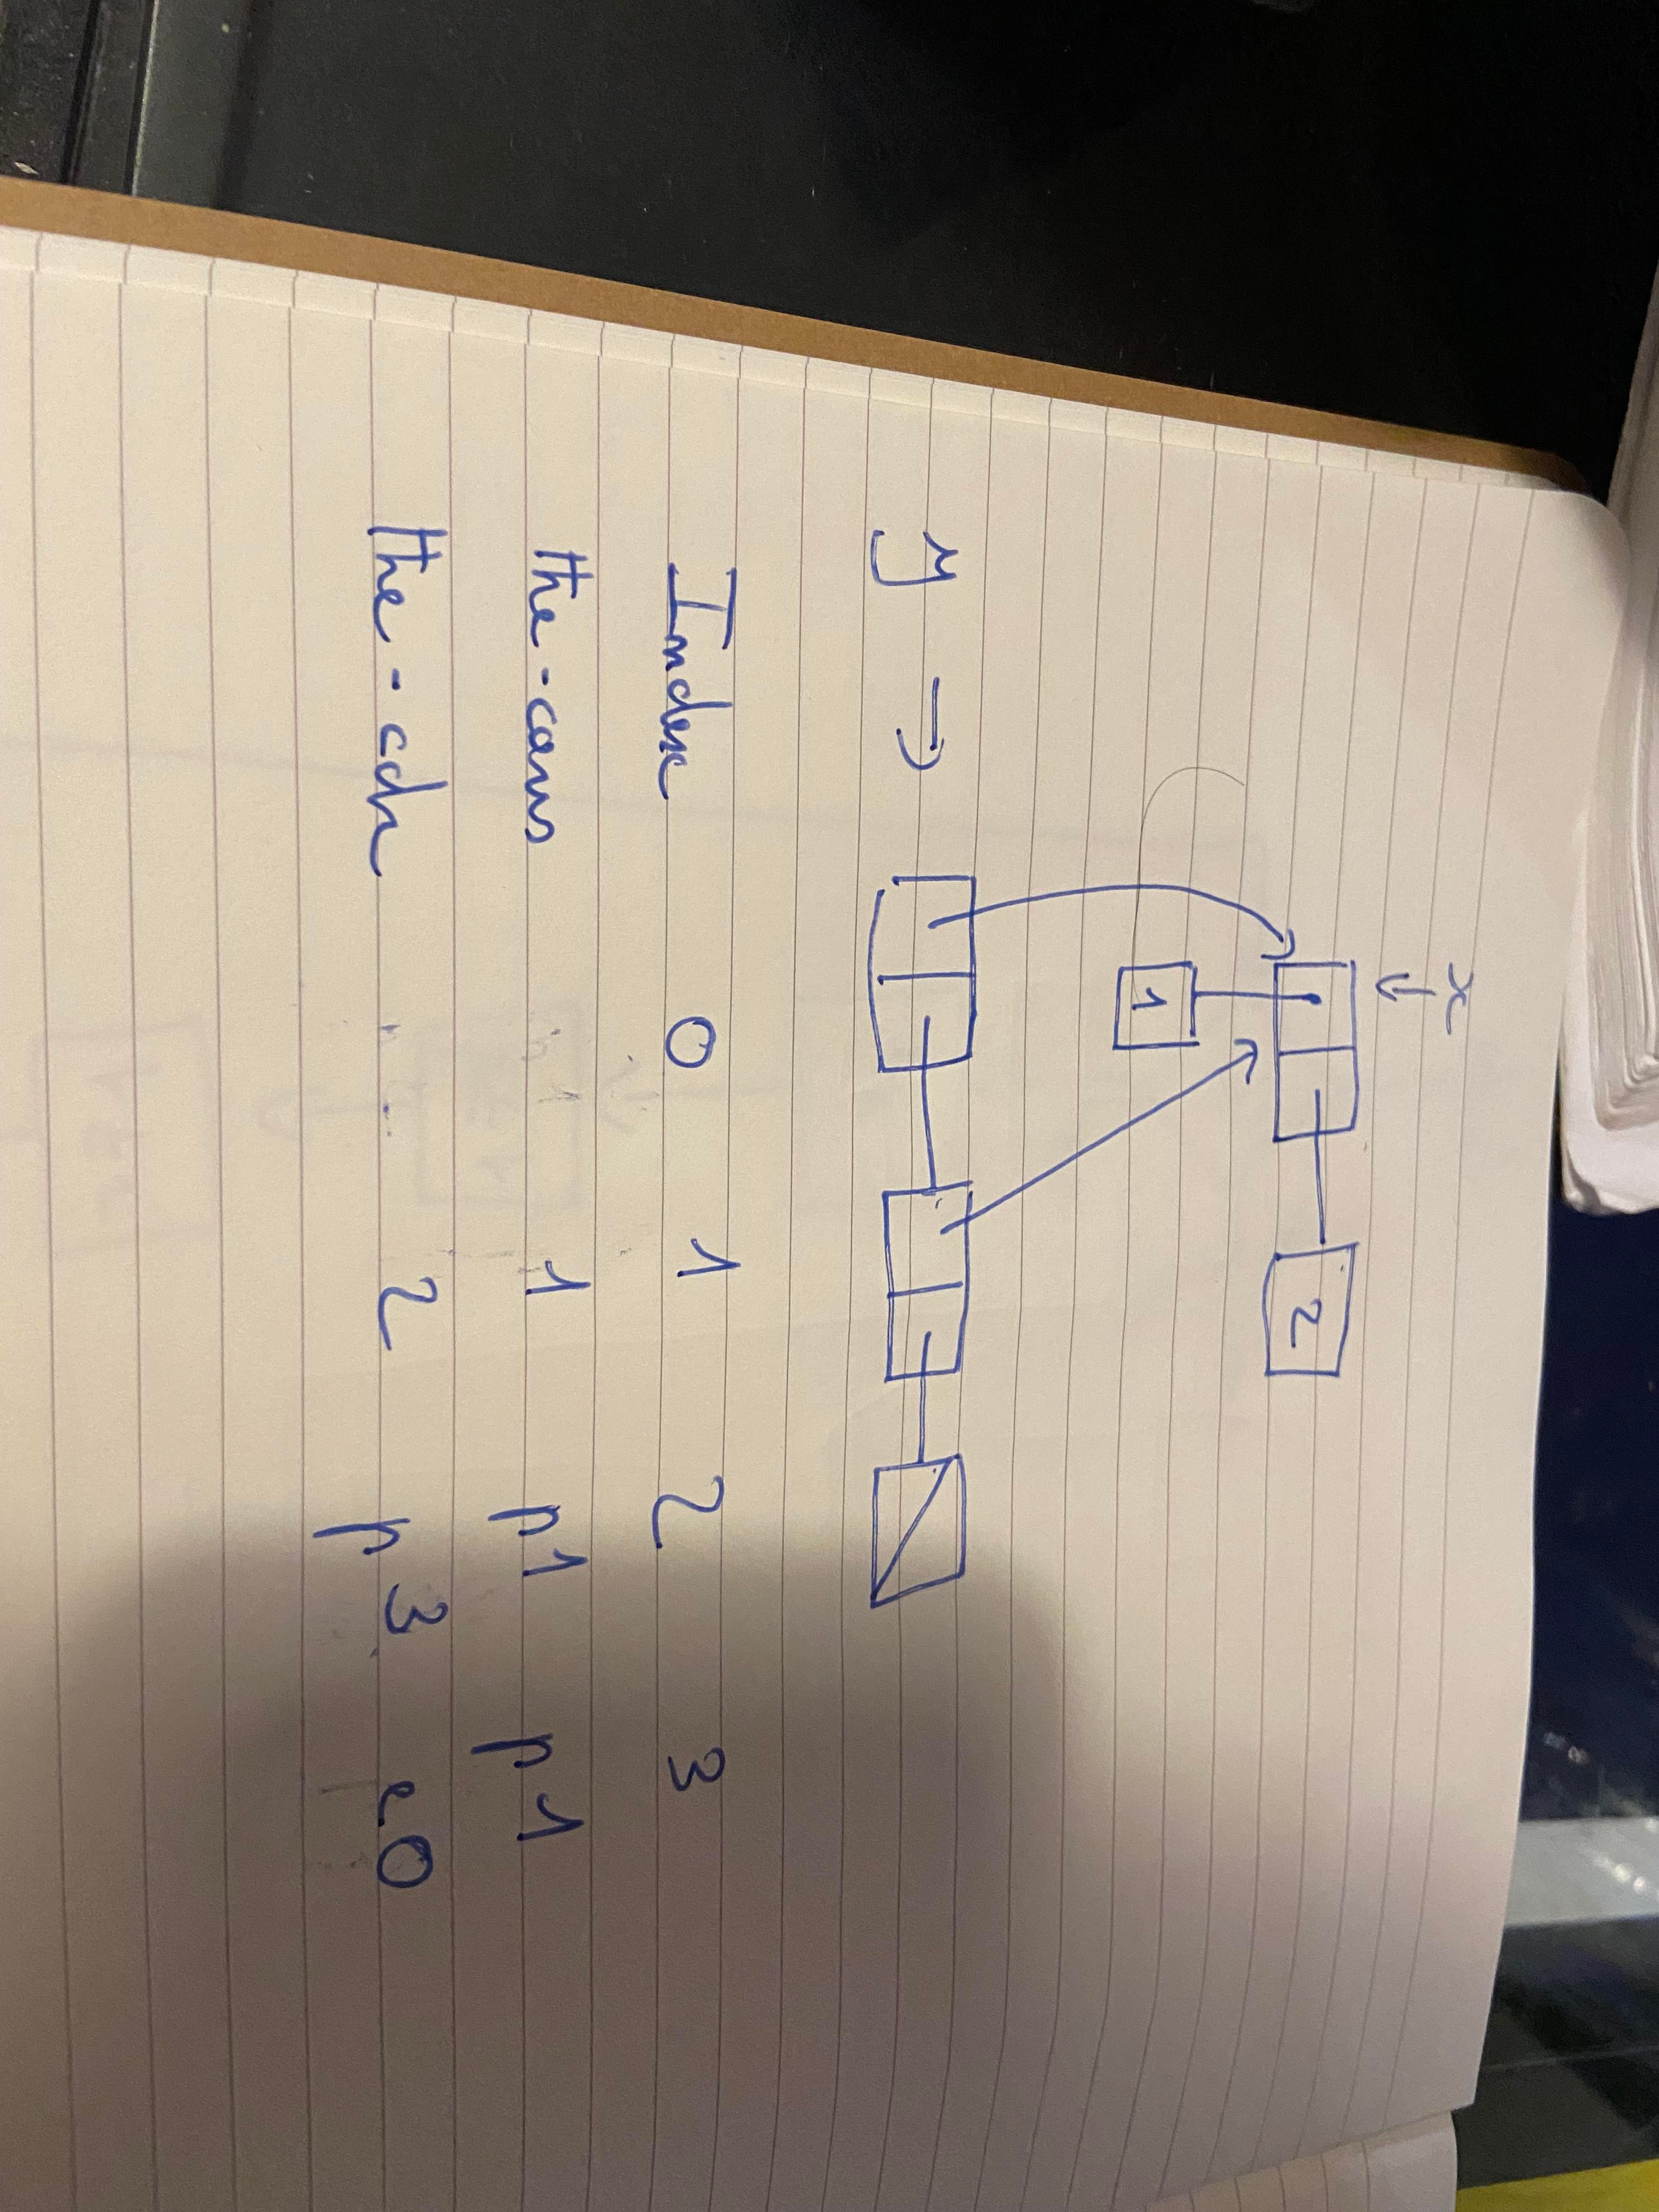 x
2
1
y →
Index 0 1 2 3
the-cars 1 p1 p1
the-cdr 2 p3 e0